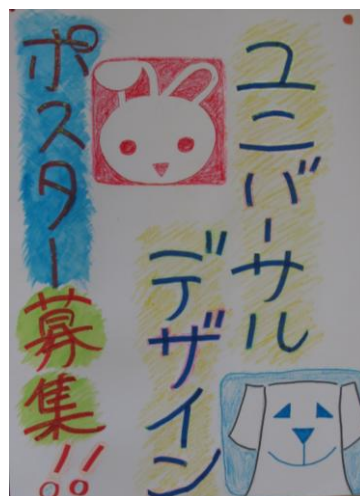 ユニバーサル
デザイン
ポスター募集!!